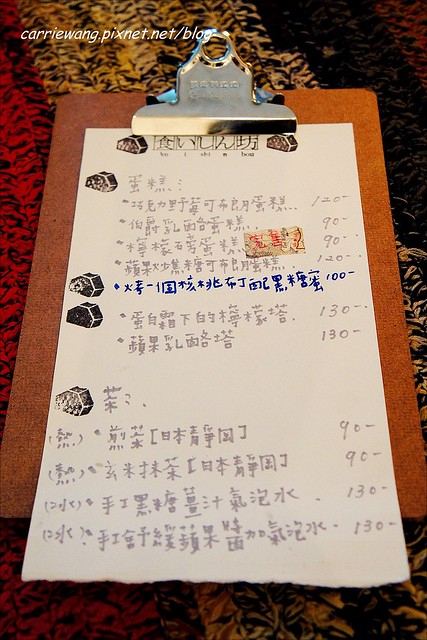 carriewang.pixnet.net/blog
食いしん坊
ku i shi n bou
蛋糕:
•巧克力野莓可布朗蛋糕. 120-
•伯爵乳酪蛋糕. 90-
•檸檬磅蛋糕 完售 90-
•蘋果炒焦糖可布朗蛋糕. 120-
•烤一個核桃布丁配黑糖蜜 100-
•蛋白霜下的檸檬塔. 130-
•蘋果乳酪塔 130-
茶:.
(熱)•煎茶[日本靜岡] 90-
(熱)•玄米抹茶[日本靜岡] 90-
(冰)•手工黑糖薑汁氣泡水. 130-
(冰)•手工 蘋果醬加氣泡水- 130-